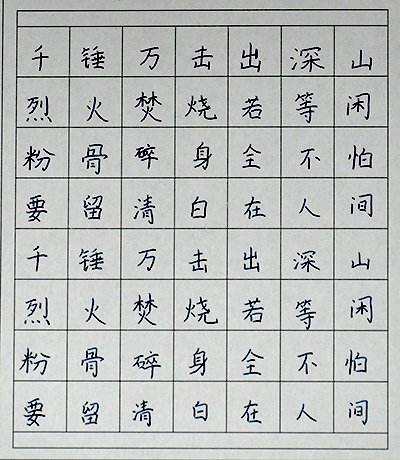 千锤万击出深山
烈火焚烧若等闲
粉骨碎身全不怕
要留清白在人间
千锤万击出深山
烈火焚烧若等闲
粉骨碎身全不怕
要留清白在人间